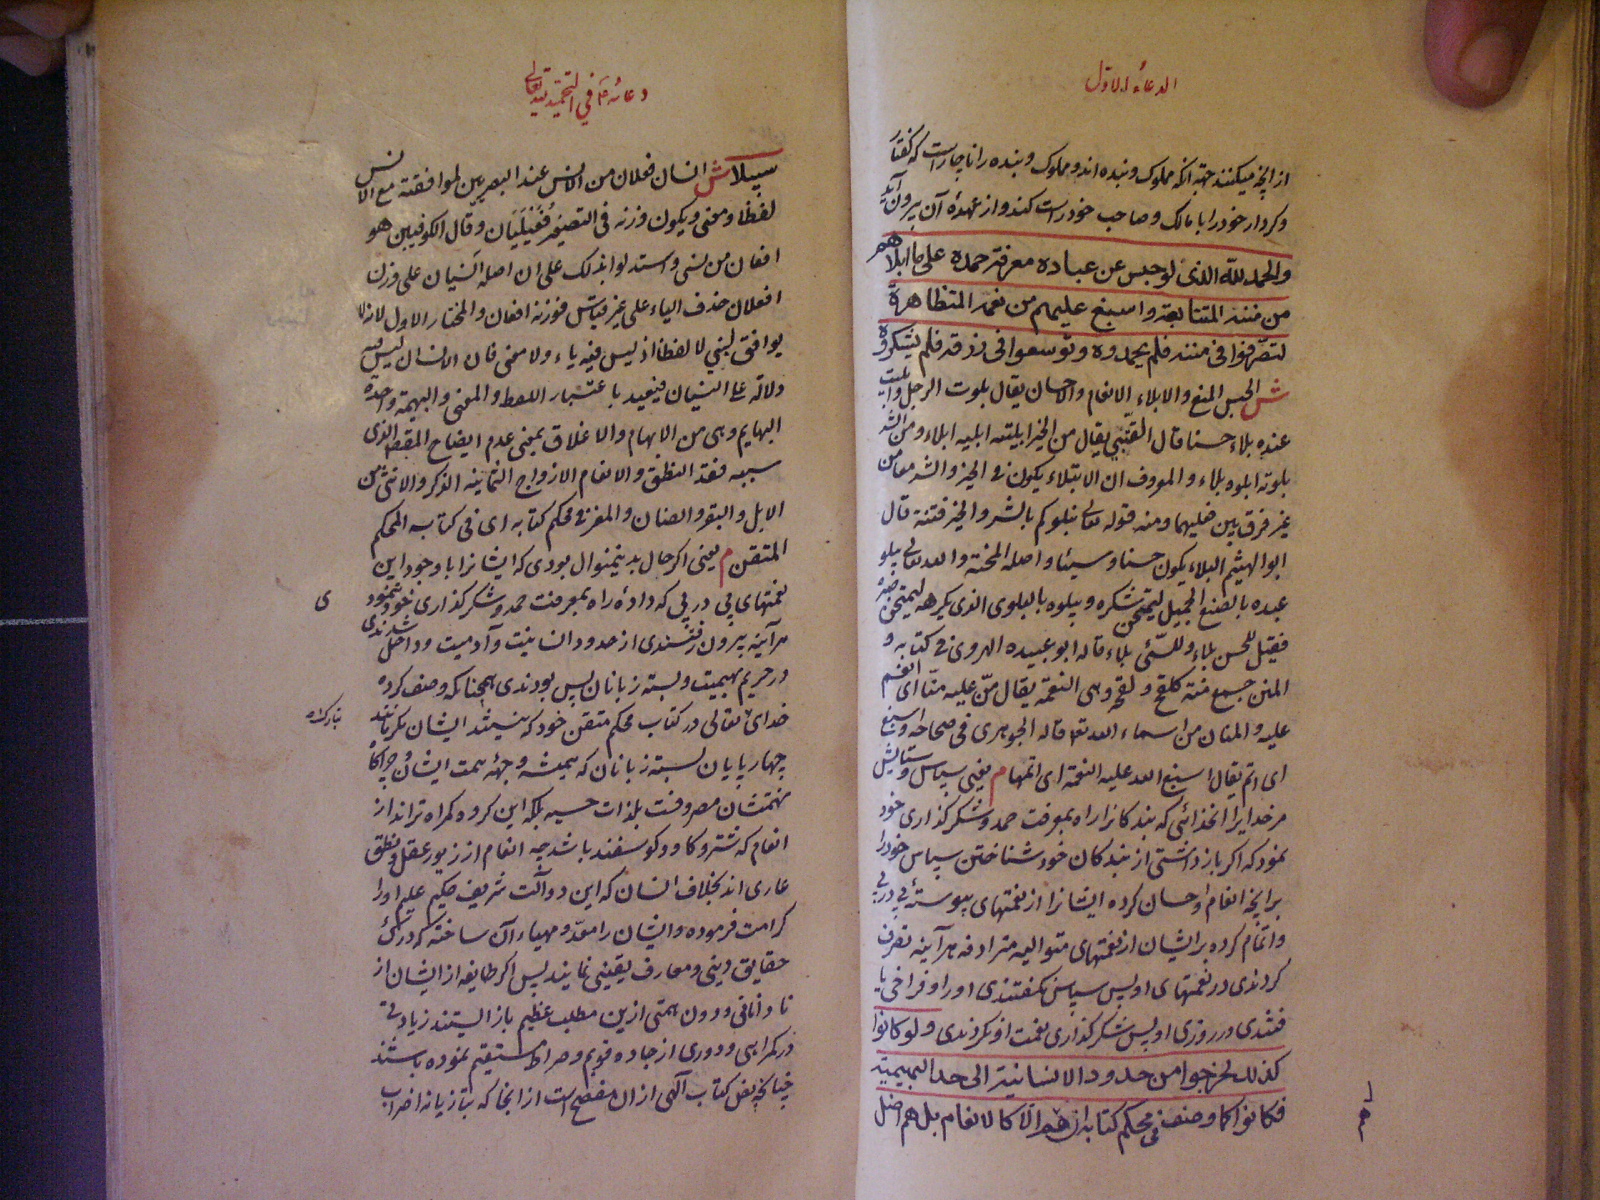 الدعاء الاول
از انچه میکنند جهة انکه مملوک و بنده اند و مملوک و بنده را ناچار است که گفتار
و کردار خود را با مالک و صاحب خود راست کند و از عهدهٔ آن بیرون آید
والحمد لله الذی لو حبس عن عباده معرفة حمده علی ما ابلاهم
من مننه المتتابعة واسبغ علیهم من نعمه المتظاهرة
لتصرفوا فی مننه فلم یحمدوه وتوسعوا فی رزقه فلم یشکروه
ش الحبس المنع والابلاء الانعام والاحسان یقال بلوت الرجل وابلیت
عنده بلاء حسنا قال القتیبی یقال من الخیر ابلیته ابلیه ابلاء ومن الشر
بلوته ابلوه بلاء والمعروف ان الابتلاء یکون فی الخیر والشر معا من
غیر فرق بین فعلیهما ومنه قوله تعالی نبلوکم بالشر والخیر فتنة قال
ابو الهیثم البلاء یکون حسنا وسیئا واصله المحنة والله تعالی یبلو
عبده بالصنع الجمیل لیمتحن شکره ویبلوه بالبلوی الذی یکرهه لیمتحن صبره
فقیل للحسن بلاء وللسیئ بلاء قاله ابو عبیده الهروی فی کتابه و
المنن جمع منة کلقح ولقحه وهی النعمة یقال من علیه منا ای انعم
علیه والمنان من اسماء الله تعه قاله الجوهری فی صحاحه واسبغ
ای اتم یقال اسبغ الله علیه النعمة ای اتمها م یعنی سپاس و ستایش
مر خدایرا انخدائی که بندکانرا راه بمعرفت حمد و شکر کذاری خود
نمود که اکر باز داشتی از بندکان خود شناختن سپاس خود را
بر انچه انعام و احسان کرده ایشانرا از نعمتهای پیوستهٔ پی در پی
و اتمام کرده بر ایشان از نعمتهای متوالیه مترادفه هر آینه تصرف
کردندی در نعمتهای او پس سپاس نکفتندی او را و فراخی یا
فتندی در روزی او پس شکر کذاری نعمت او نکردندی ولو کانوا
کذلک لخرجوا من حدود الانسانیة الی حد البهیمیة
فکانوا کما وصف فی محکم کتابه ان هم الا کالانعام بل هم اضل
هم
دعائه ع فی التحمید لله تعالی
سبیلا ش انسان فعلان من الانس عند البصریین لموافقته مع الانس
لفظا ومعنی ویکون وزنه فی التصغیر فعیلیان وقال الکوفیین هو
افعان من نسی واستدلوا بذلک علی ان اصله انسیان علی وزن
افعلان حذف الیاء علی غیر قیاس فوزنه افعان والمختار الاول لانه لا
یوافق لنسی لا لفظا اذ لیس فیه یاء ولا معنی فان الانسان لیس فیه
دلالة علی النسیان فیبعد باعتبار اللفظ والمعنی والبهیمة واحدة
البهایم وهی من الابهام والاغلاق بمعنی عدم ایضاح المقصد الذی
سببه فقد النطق والانعام الازواج الثمانیة الذکر والانثی من
الابل والبقر والضان والمعز فی محکم کتابه ای فی کتابه المحکم
المتقن م یعنی اکر حال بدینمنوال بودی که ایشانرا با وجود این
نعمتهای پی در پی که دادهٔ راه بمعرفت حمد و شکر کذاری خود ننمود
ی
هر آینه بیرون رفتندی از حدود انسانیت و آدمیت و داخل شدندی
در حریم بهیمیت و بسته زبانان پس بودندی همچنانکه وصف کرده
خدای تعالی در کتاب محکم متقن خود که نیستند ایشان مکر مانند
چهار پایان بسته زبانان که همیشه وجههٔ همت ایشان و چراکاه
نهمتشان مصروفست بلذات حسیه بلکه این کروه کمراه تراند از
انعام که شتر و کاو و کوسفند باشد چه انعام از زیور عقل و نطق
عاری اند بخلاف انسان که این دو آلت شریف حکیم علیم او را
کرامت فرموده و ایشان را معد و مهیاء آن ساخته که درک
حقایق دینی و معارف یقینی نمایند پس اکر طایفه از ایشان از
نادانانی و دون همتی ازین مطلب عظیم باز ایستند زیادتی
در کمراهی و دوری از جاده قویم و صراط مستقیم نموده باشند
چنانچه نص کتاب الهی از ان مفصح است از انجا که بتازیانه اضراب